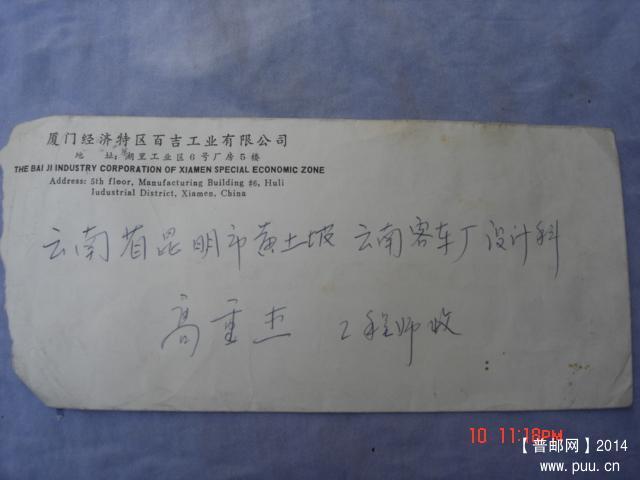 厦门经济特区百吉工业有限公司
地 址：湖里工业区6号厂房5楼
THE BAI JI INDUSTRY CORPORATION OF XIAMEN SPECIAL ECONOMIC ZONE
Address: 5th floor, Manufacturing Building #6, Huli
Iudustrial District, Xiamen, China
云南省昆明市黄土坡 云南客车厂设计科
高重杰 工程师收
10 11:18PM
【普邮网】2014
www.puu.cn